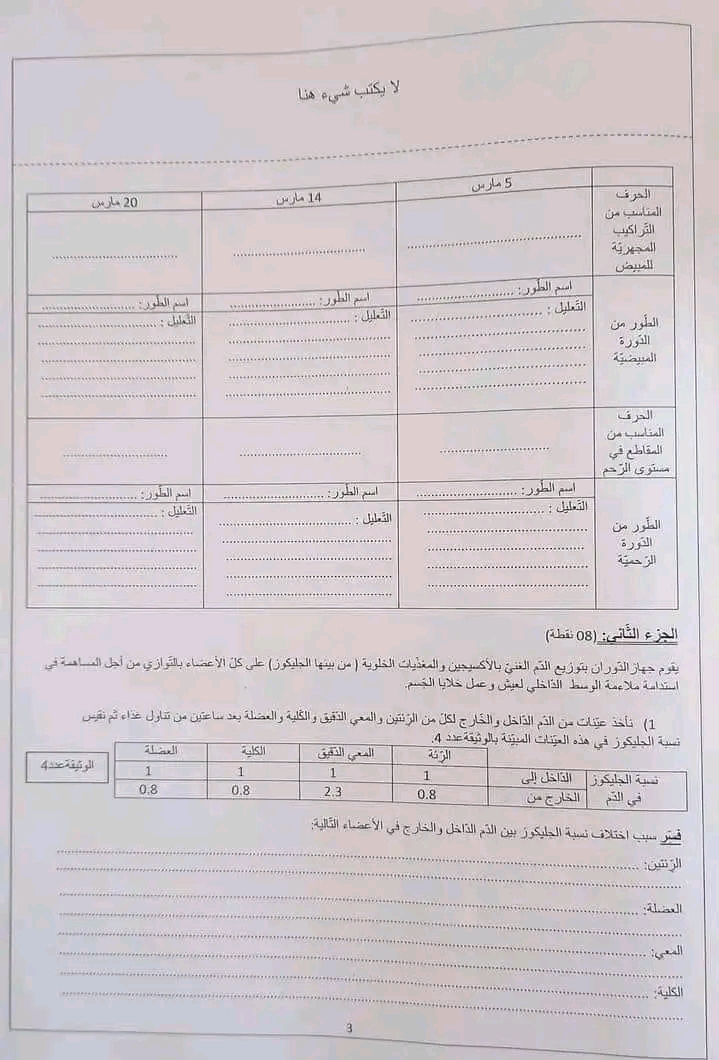 لا يكتب شيء هنا
الحرف المناسب من التراكيب المجهريّة للمبيض
5 مارس
14 مارس
20 مارس
..............................
..............................
..............................
الطّور من الدّورة المبيضيّة
اسم الطّور: ..........................
اسم الطّور: ..........................
اسم الطّور: ..........................
التّعليل : ..............................
التّعليل : ..............................
التّعليل : ..............................
الحرف المناسب من المقاطع في مستوى الرّحم
..............................
..............................
..............................
الطّور من الدّورة الرّحميّة
اسم الطّور: ..........................
اسم الطّور: ..........................
اسم الطّور: ..........................
التّعليل : ..............................
التّعليل : ..............................
التّعليل : ..............................
الجزء الثّاني: (08 نقطة)
يقوم جهاز الدّوران بتوزيع الدّم الغنيّ بالأكسيجين والمغذّيات الخلوية ( من بينها الجليكوز) على كلّ الأعضاء بالتّوازي من أجل المساهمة في
استدامة ملاءمة الوسط الدّاخلي لعيش وعمل خلايا الجسم.
1) نأخذ عيّنات من الدّم الدّاخل والخارج لكلّ من الرّئتين والمعي الدّقيق والكلية والعضلة بعد ساعتين من تناول غذاء ثمّ نقيس
نسبة الجليكوز في هذه العيّنات المبيّنة بالوثيقة عدد 4.
الرّئة المعي الدّقيق الكلية العضلة
نسبة الجليكوز في الدّم الدّاخل إلى 1 1 1 1
الخارج من 0.8 2.3 0.8 0.8
الوثيقة عدد 4
فسّر سبب اختلاف نسبة الجليكوز بين الدّم الدّاخل والخارج في الأعضاء التّالية:
الرّئتين: ............................................................
العضلة: ............................................................
المعي: ............................................................
الكلية: ............................................................
3